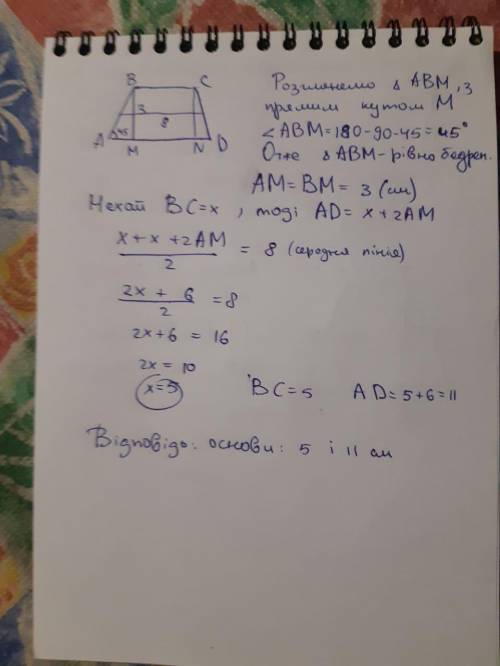 B C
3
8
A 45 M N D
Розглянемо Δ ABM, з
прямим кутом M
∠ABM=180-90-45=45°
Отже Δ ABM-рівнобедрен.
AM=BM= 3 (см)
Нехай BC=x, тоді AD= x+2AM
x+x+2AM / 2 = 8 (середня лінія)
2x + 6 / 2 =8
2x+6 = 16
2x = 10
x=5
BC=5 AD=5+6=11
Відповідь: основи: 5 і 11 см